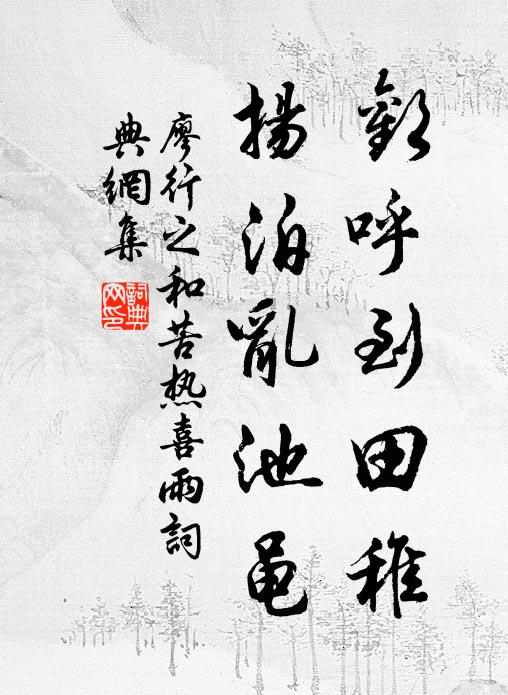 歡呼到田稚
揚泊亂池黽
廖行之和苦热喜雨詞
典網集
詞典網印